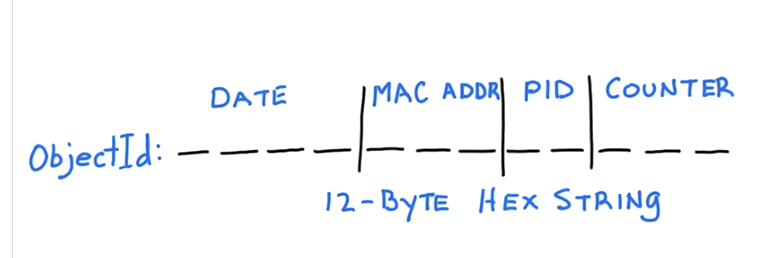 DATE MAC ADDR PID COUNTER
ObjectId: _ _ _ _ | _ _ _ | _ _ | _ _ _
12-BYTE HEX STRING